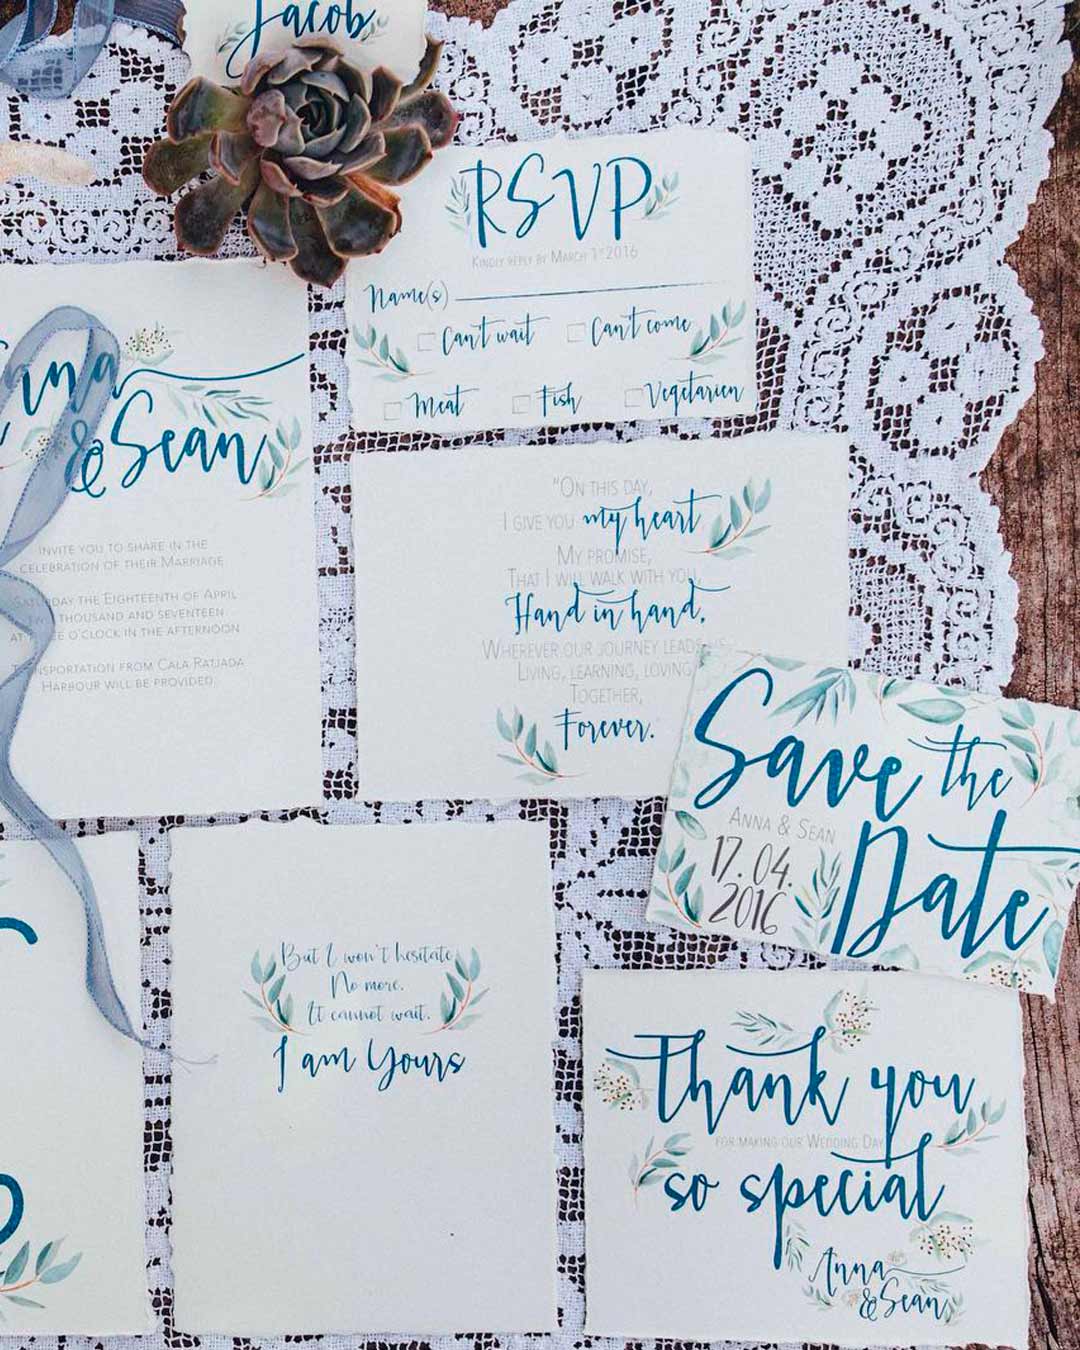 Jacob
RSVP
Kindly reply by March 1st 2016
Name(s)
Can't wait Can't come
Meat Fish Vegetarien
& Sean
invite you to share in the
celebration of their Marriage
the Eighteenth of April
thousand and seventeen
o'clock in the afternoon
from Cala Ratjada
Harbour will be provided.
"On this day,
I give you my heart
My promise,
That I will walk with you,
Hand in hand,
Wherever our journey leads us
Living, learning, loving
Together,
Forever.
Save the
Date
Anna & Sean
17.04.
2016
But I won't hesitate
No more.
It cannot wait.
I am Yours
Thank you
for making our Wedding Day
so special
Anna
& Sean